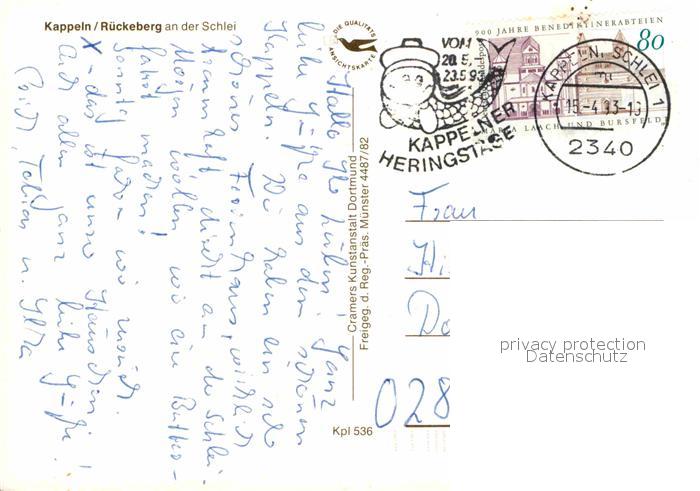 Kappeln / Rückeberg an der Schlei
DIE QUALITÄTS
ANSICHTSKARTE
Hallo Ihr Lieben! Ganz
liebe Grüße aus dem schönen
Kappeln. Wir haben ein sehr
schönes Ferienhaus, wirklich
traumhaft direkt an der Schlei.
Morgen wollen wir eine Butter-
fahrt machen!
Sonntag fahren wir zurück.
X - das ist unser Häuschen
Euch allen ganz liebe Grüße!
Tobias u.
Cramers Kunstanstalt Dortmund
Freigeg. d. Reg.-Präs. Münster 4487/82
Kpl 536
VOM
20.5.-
23.5.93
KAPPELNER
HERINGSTAGE
900 JAHRE BENEDIKTINERABTEIEN
80
MARIA LAACH UND BURSFELDE
KAPPELN, SCHLEI 1
15-4.93-10
2340
Frau
028
privacy protection
Datenschutz